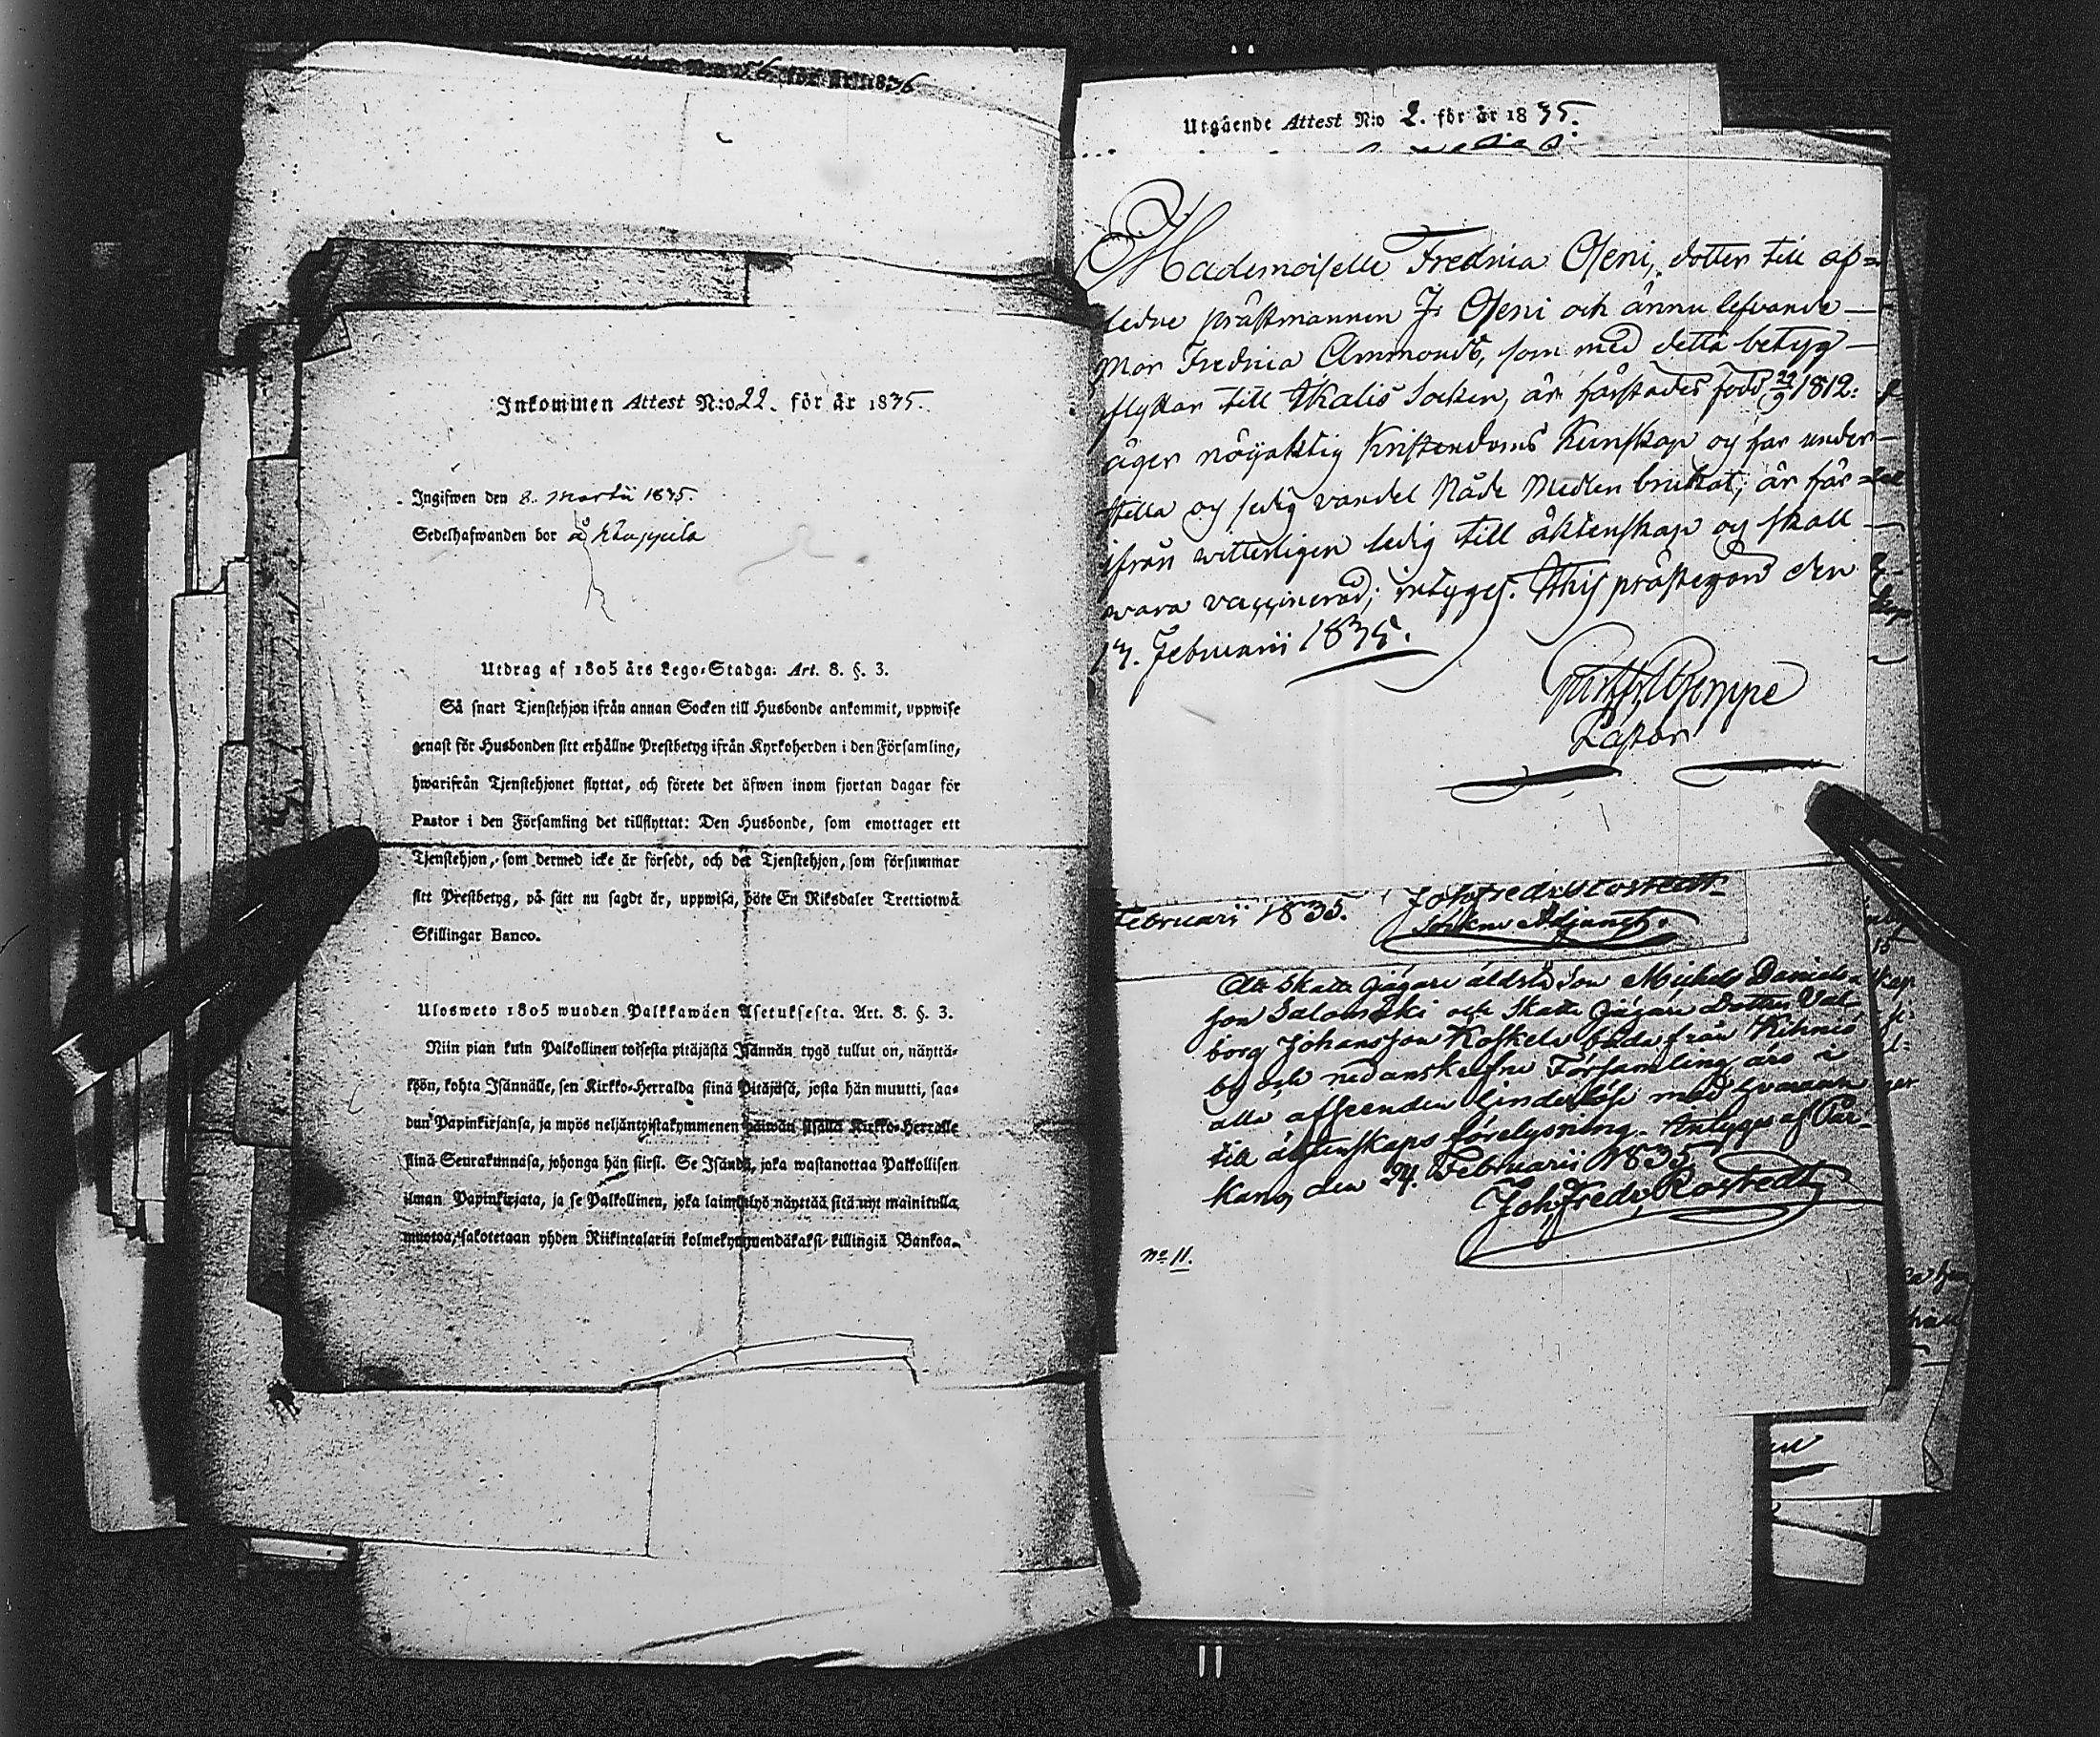 för år 1836
Inkommen Attest N:o 22. för år 1835.
Ingifwen den 8. Martii 1835.
Sedelhafwanden bor å Knappila
Utdrag af 1805 års Lego-Stadga: Art. 8. §. 3.
Så snart Tjenstehjon ifrån annan Socken till Husbonde ankommit, uppwise
genast för Husbonden sitt erhållne Prestbetyg ifrån Kyrkoherden i den Församling,
hwarifrån Tjenstehjonet flyttat, och förete det äfwen inom fjortan dagar för
Pastor i den Församling det tillflyttat: Den Husbonde, som emottager ett
Tjenstehjon, som dermed icke är försedt, och det Tjenstehjon, som försummar
sitt Prestbetyg, på sätt nu sagdt är, uppwisa, böte En Riksdaler Trettiotwå
Skillingar Banco.
Ulosweto 1805 wuoden Palkkawäen Asetuksesta. Art. 8. §. 3.
Niin pian kuin Palkollinen toisesta pitäjästä Isännän tygö tullut on, näyttä-
köön, kohta Isännälle, sen Kirkko-Herralda siinä Pitäjäsä, josta hän muutti, saa-
dun Papinkirjansa, ja myös neljäntoistakymmenen päiwän sisällä Kirkko-Herralle
siinä Seurakunnasa, johonga hän siirsi. Se Isändä, joka wastanottaa Palkollisen
ilman Papinkirjata, ja se Palkollinen, joka laiminlyö näyttää sitä nyt mainitulla
muotoa, sakotetaan yhden Riikintalarin kolmekymmendäkaksi killingiä Bankoa.
Utgående Attest N:o 2. för år 1835.
Mademoiselle Fredrica Oseni, dotter till af=
ledne prästmannen J: Oseni och ännu lefvande
Mor Fredrica Ammondt, som med detta betyg
flyttar till Ikalis Socken, är härstädes född 29/9 1812:
äger nöjaktig Kristendoms Kunskap og har under
stilla og sedig vandel Nåde Medlen brukat; är här=
ifrån witterligen ledig till äktenskap og skall
wara vaccinerad; intyges. Thisprästegård den
13. Februarii 1835.
Pastor
Februarii 1835. Joh Fredr Rostedt
Sockne Adjunct.
Att Skatte Jägare äldsta Son Michels Daniels
son Salomski och Skatte Jägare Dottren Val
borg Johansson Koskela båda från Kihniö
by och nedanskrefne Församling äro i
alla afseenden hinderlöse med hvarann
till äktenskaps förelysning. Intyges af Par-
kano, den 24. Februarii 1835
Joh, Fredr, Rostedt
No 11.